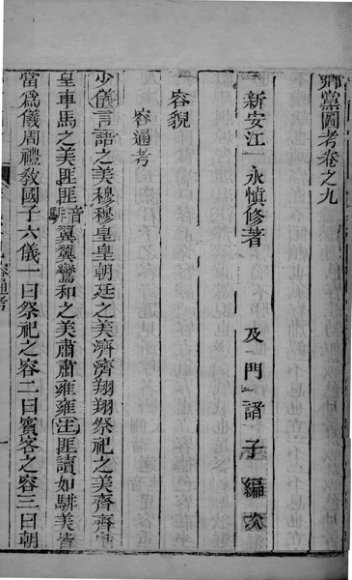 鄉黨圖考卷之九
新安江 永慎修著 及門諸子編次
容貌
容通考
少儀言語之美穆穆皇皇朝廷之美濟濟翔翔祭祀之美齊齊皇
皇車馬之美匪匪音騑翼翼鸞和之美肅肅雍雍注匪讀如騑美皆
當爲儀周禮教國子六儀一曰祭祀之容二曰賓客之容三曰朝
容通考